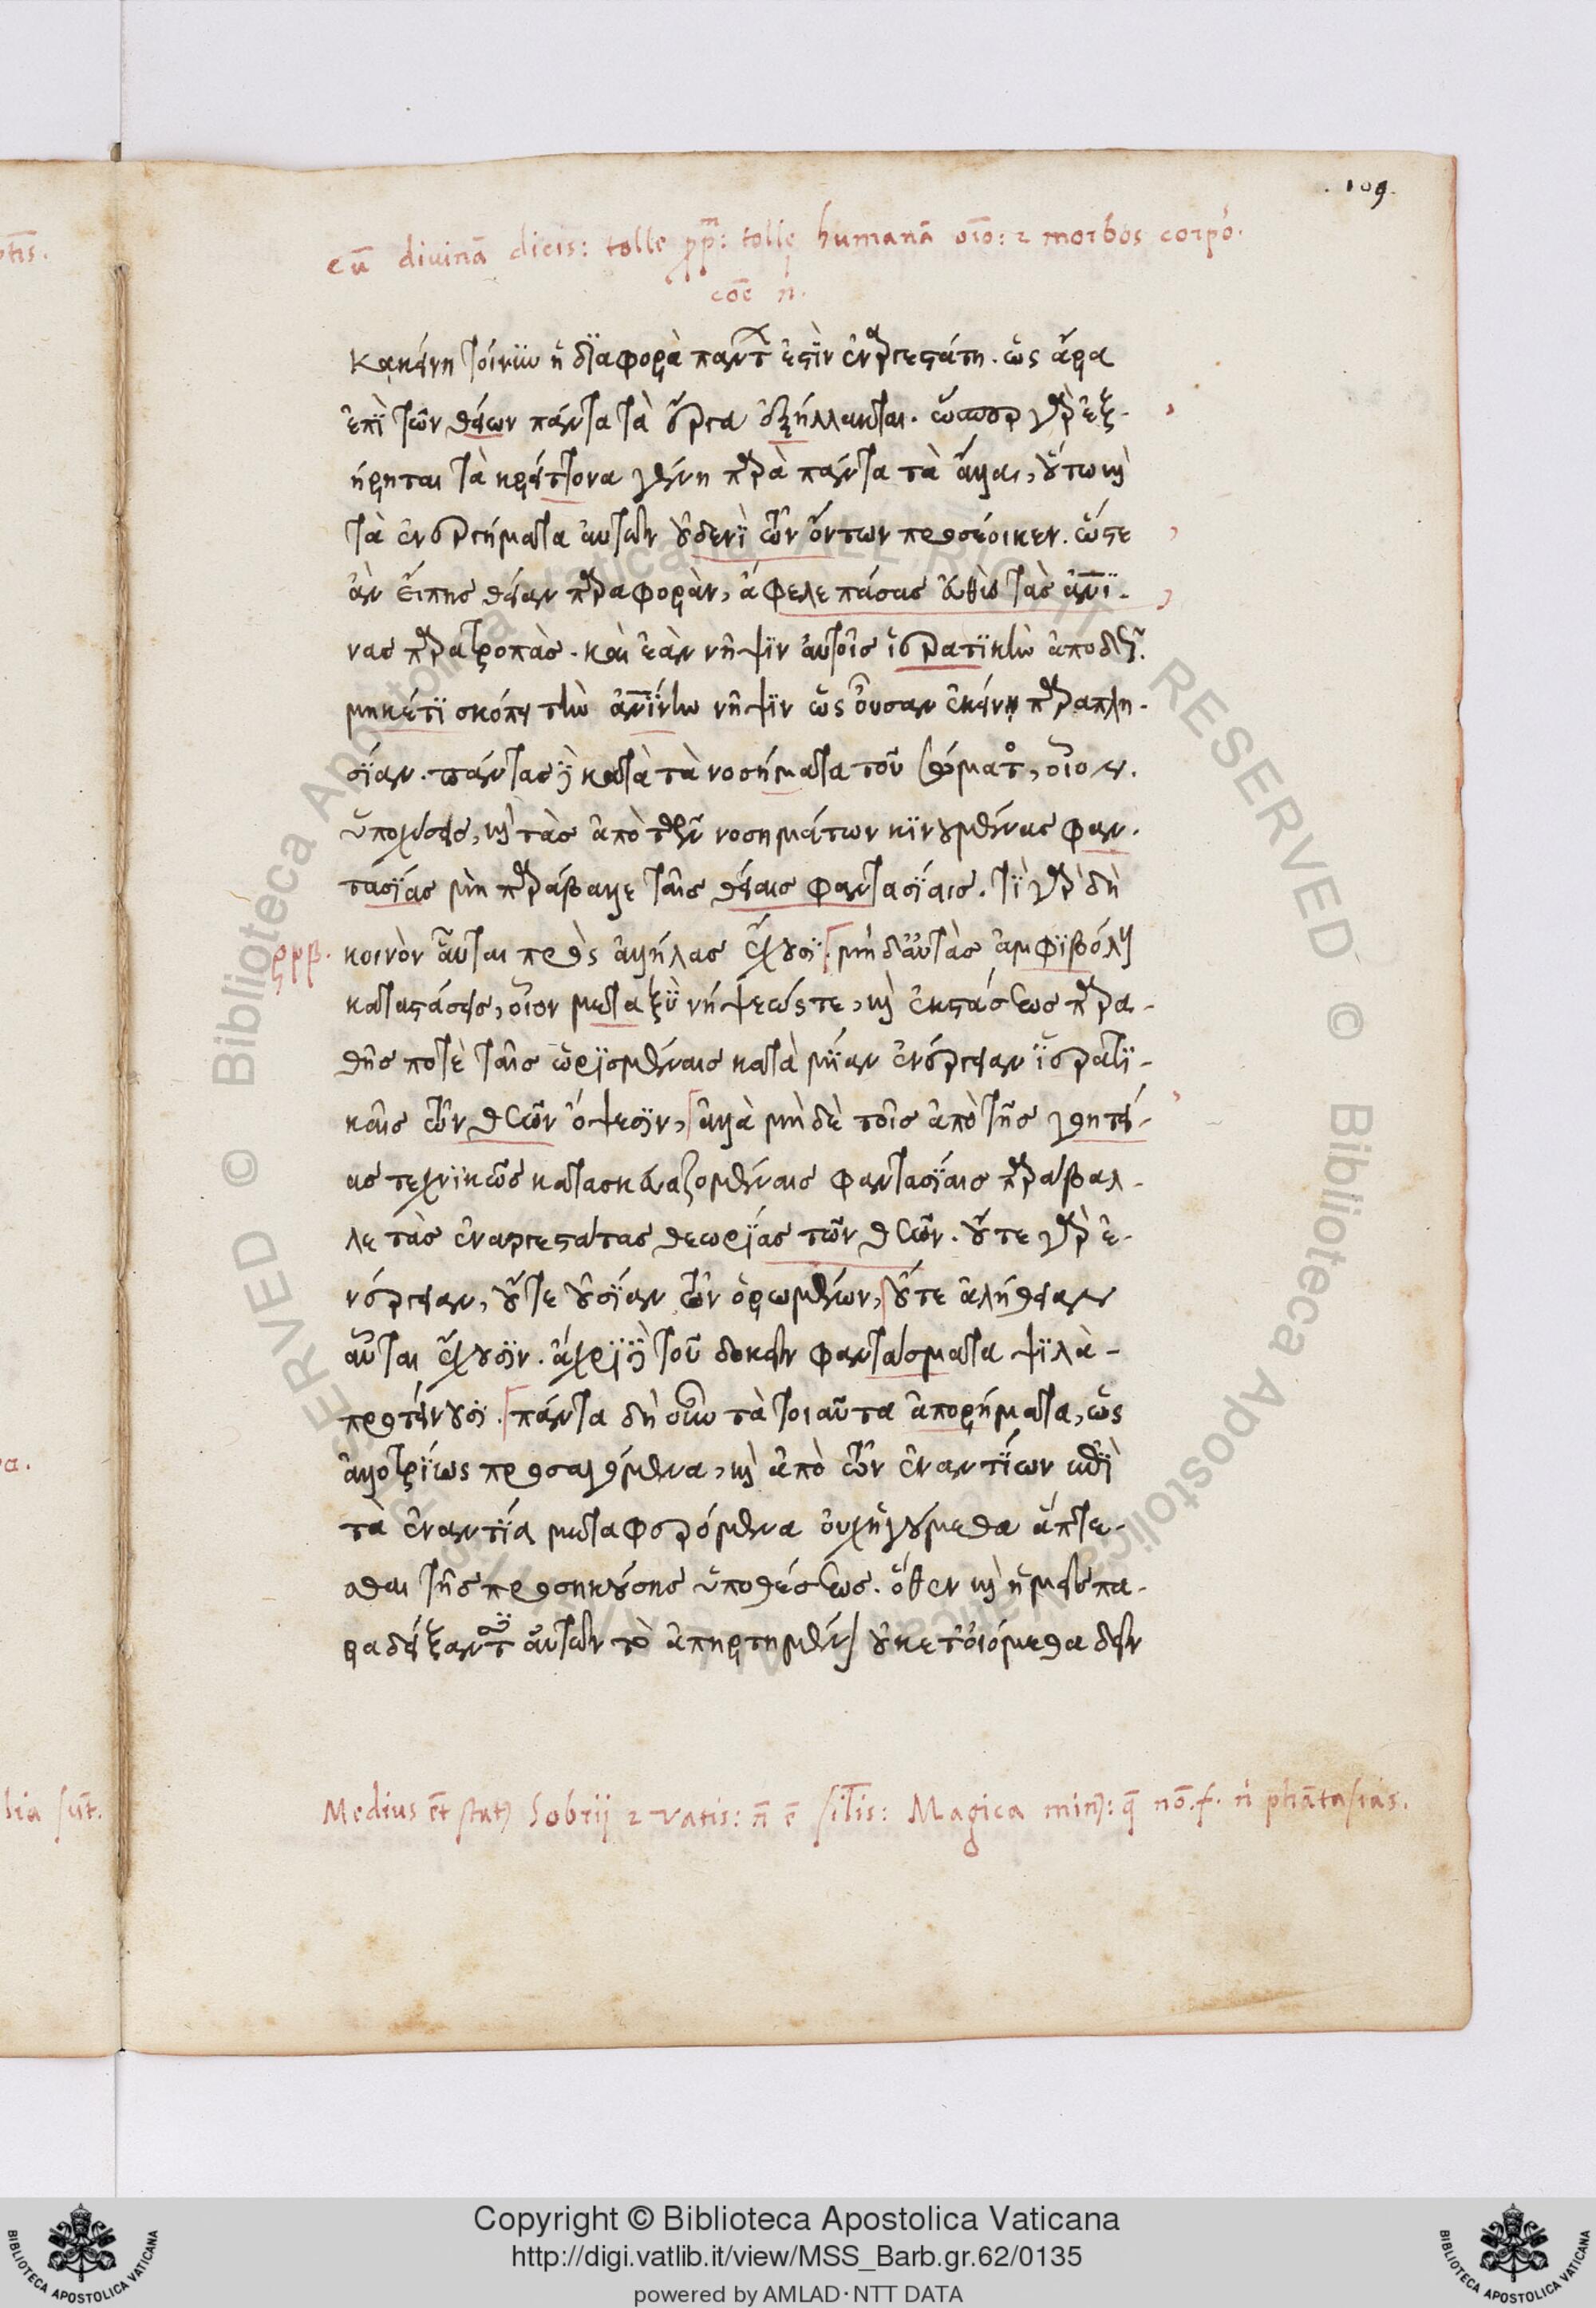 . 109.
cū divinā dicis: tolle tolle humanā oīo: 2 morbos corpo.
coē n.
κἀκείνη τοίνυν ἡ διαφορὰ παντός ἐστὶν ἐναργεστάτη. ὡς ἄρα
ἐπὶ τῶν θείων πάντα τὰ ἔργα ἐξήλλακται. ὥσπερ γὰρ ἐξ-
ήρηται τὰ κρείττονα γένη παρὰ πάντα τὰ ἄλλα, οὕτω καὶ
τὰ ἐνεργήματα αὐτῶν οὐδενὶ τῶν ὄντων προσέοικεν. ὥστε
ἂν εἴπης θείαν παραφορὰν, ἄφελε πάσας εὐθὺς τὰς ἀνθρωπί-
νας παρατροπάς. καὶ ἐὰν νῆψιν αὐτοῖς ἱερατικὴν ἀποδῷς.
μηκέτι σκόπει τὴν ἀνθρωπίνην νῆψιν ὡς οὖσαν ἐκείνῃ παραπλη-
σίαν. πάντως δὲ κατὰ τὰ νοσήματα τοῦ σώματος, οἷον.
ὑποχύσεις, καὶ τὰς ἀπὸ τῶν νοσημάτων κινουμένας φαν-
τασίας μὴ παράβαλλε ταῖς θείαις φαντασίαις. τί γὰρ δὴ
ρμβ. κοινὸν αὗται πρὸς ἀλλήλας ἔχουσι. μηδ' αὐτὰς ἀμφιβόλοις
καταστάσεις, οἷον μεταξὺ νήψεώς τε, καὶ ἐκστάσεως παρα-
θῇς ποτὲ ταῖς ὡρισμέναις κατὰ μίαν ἐνέργειαν ἱερατι-
καῖς τῶν θεῶν ὄψεσιν, ἀλλὰ μηδὲ τοῖς ἀπὸ τῆς γοητεί-
ας τεχνικῶς κατασκευαζομέναις φαντασίαις παράβαλ-
λε τὰς ἐναργεστάτας θεωρίας τῶν θεῶν. οὔτε γὰρ ἐ-
νέργειαν, οὔτε οὐσίαν τῶν ὁρωμένων, οὔτε ἀλήθειαν
αὗται ἔχουσιν. ἄχρι δὲ τοῦ δοκεῖν φαντάσματα ψιλὰ -
προτείνουσι. πάντα δὴ οὖν τὰ τοιαῦτα ἀπορήματα, ὡς
ἀλλοτρίως προσαγόμενα, καὶ ἀπὸ τῶν ἐναντίων ἐπὶ
τὰ ἐναντία μεταφερόμενα οὐχ ἡγούμεθα ἅπτε-
σθαι τῆς προσηκούσης ὑποθέσεως. ὅθεν καὶ ἡμεῖς πα-
ραδείξαντες αὐτῶν τὸ ἀπηρτημένον οὐκέτ' οἰόμεθα δεῖν
Medius ēt statꝰ Sobrii 2 vatis: n̄ ē silis: Magica minꝰ: q̄ nō.f. n phātasias.
Copyright © Biblioteca Apostolica Vaticana
http://digi.vatlib.it/view/MSS_Barb.gr.62/0135
powered by AMLAD·NTT DATA